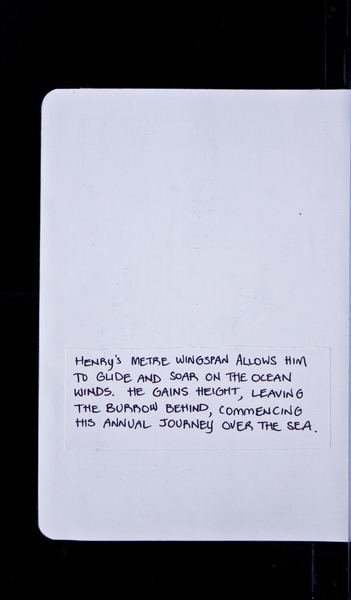 HENRY'S METRE WINGSPAN ALLOWS HIM
TO GLIDE AND SOAR ON THE OCEAN
WINDS. HE GAINS HEIGHT, LEAVING
THE BURROW BEHIND, COMMENCING
HIS ANNUAL JOURNEY OVER THE SEA.